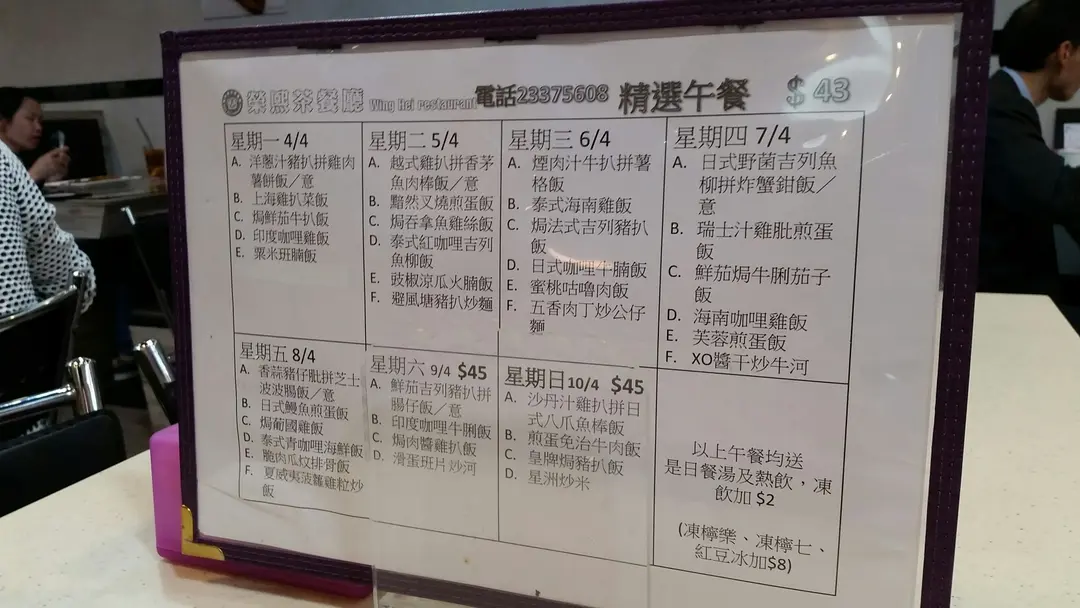 榮熙茶餐廳 Wing Hei restaurant 電話23375608 精選午餐 $43
星期一 4/4
A. 洋蔥汁豬扒拼雞肉
薯餅飯／意
B. 上海雞扒菜飯
C. 焗鮮茄牛扒飯
D. 印度咖哩雞飯
E. 粟米班腩飯
星期二 5/4
A. 越式雞扒拼香茅
魚肉棒飯／意
B. 黯然叉燒煎蛋飯
C. 焗吞拿魚雞絲飯
D. 泰式紅咖哩吉列
魚柳飯
E. 豉椒涼瓜火腩飯
F. 避風塘豬扒炒麵
星期三 6/4
A. 煙肉汁牛扒拼薯
格飯
B. 泰式海南雞飯
C. 焗法式吉列豬扒
飯
D. 日式咖哩牛腩飯
E. 蜜桃咕嚕肉飯
F. 五香肉丁炒公仔
麵
星期四 7/4
A. 日式野菌吉列魚
柳拼炸蟹鉗飯／
意
B. 瑞士汁雞肶煎蛋
飯
C. 鮮茄焗牛脷茄子
飯
D. 海南咖哩雞飯
E. 芙蓉煎蛋飯
F. XO醬干炒牛河
星期五 8/4
A. 香蒜豬仔肶拼芝士
波波腸飯／意
B. 日式鰻魚煎蛋飯
C. 焗葡國雞飯
D. 泰式青咖哩海鮮飯
E. 脆肉瓜炆排骨飯
F. 夏威夷菠蘿雞粒炒
飯
星期六 9/4 $45
A. 鮮茄吉列豬扒拼
腸仔飯／意
B. 印度咖哩牛脷飯
C. 焗肉醬雞扒飯
D. 滑蛋班片炒河
星期日 10/4 $45
A. 沙丹汁雞扒拼日
式八爪魚棒飯
B. 煎蛋免治牛肉飯
C. 皇牌焗豬扒飯
D. 星洲炒米
以上午餐均送
是日餐湯及熱飲，凍
飲加 $2
(凍檸樂、凍檸七、
紅豆冰加$8)